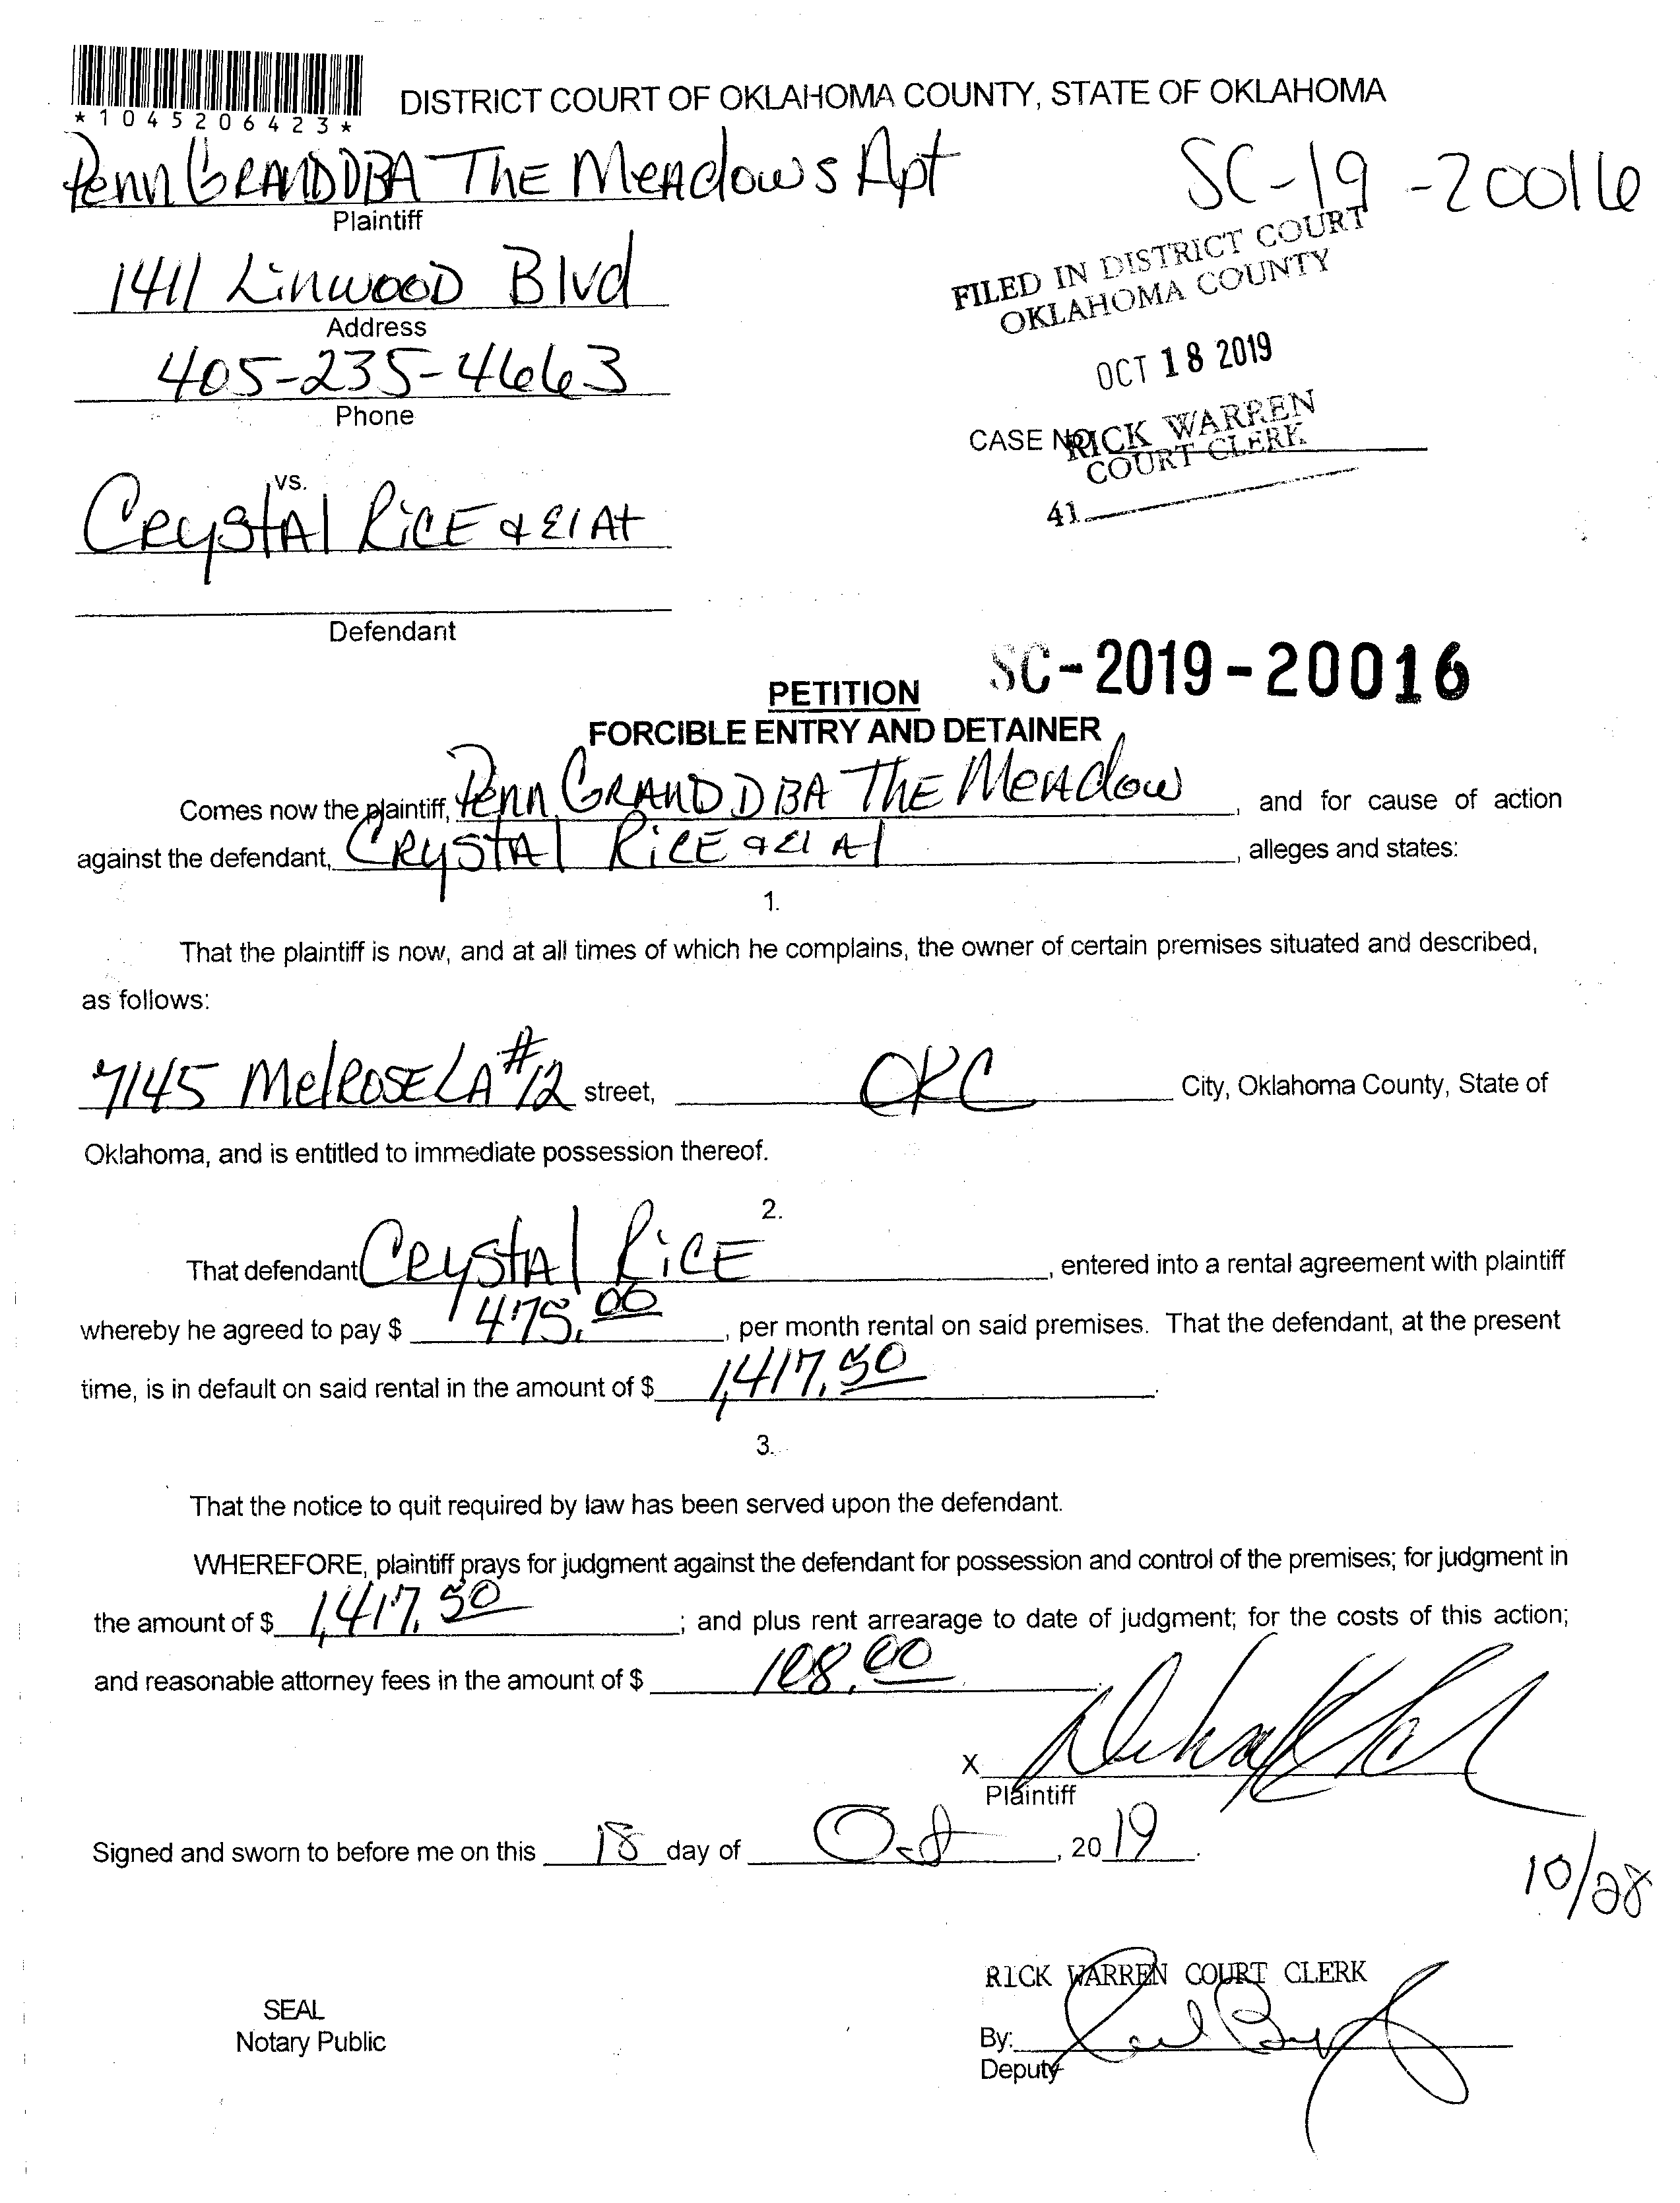 *1045206423*
DISTRICT COURT OF OKLAHOMA COUNTY, STATE OF OKLAHOMA
Penn GRAND DBA The Meadows Apt
SC-19-20016
Plaintiff
1411 Linwood Blvd
Address
405-235-4663
Phone
FILED IN DISTRICT COURT
OKLAHOMA COUNTY
OCT 18 2019
RICK WARREN
COURT CLERK
41
CASE NO.
vs.
Crystal Rice & El At
Defendant
SC-2019-20016
PETITION
FORCIBLE ENTRY AND DETAINER
Comes now the plaintiff, Penn GRAND DBA The Meadow, and for cause of action
against the defendant, Crystal Rice & El Al, alleges and states:
1.
That the plaintiff is now, and at all times of which he complains, the owner of certain premises situated and described,
as follows:
7145 Melrose LA #12 street, OKC City, Oklahoma County, State of
Oklahoma, and is entitled to immediate possession thereof.
2.
That defendant Crystal Rice, entered into a rental agreement with plaintiff
whereby he agreed to pay $ 475.00, per month rental on said premises. That the defendant, at the present
time, is in default on said rental in the amount of $ 1,417.50.
3.
That the notice to quit required by law has been served upon the defendant.
WHEREFORE, plaintiff prays for judgment against the defendant for possession and control of the premises; for judgment in
the amount of $ 1,417.50; and plus rent arrearage to date of judgment; for the costs of this action;
and reasonable attorney fees in the amount of $ 108.00.
X
Plaintiff
Signed and sworn to before me on this 18 day of Oct, 2019.
10/28
RICK WARREN COURT CLERK
SEAL
Notary Public
By:
Deputy